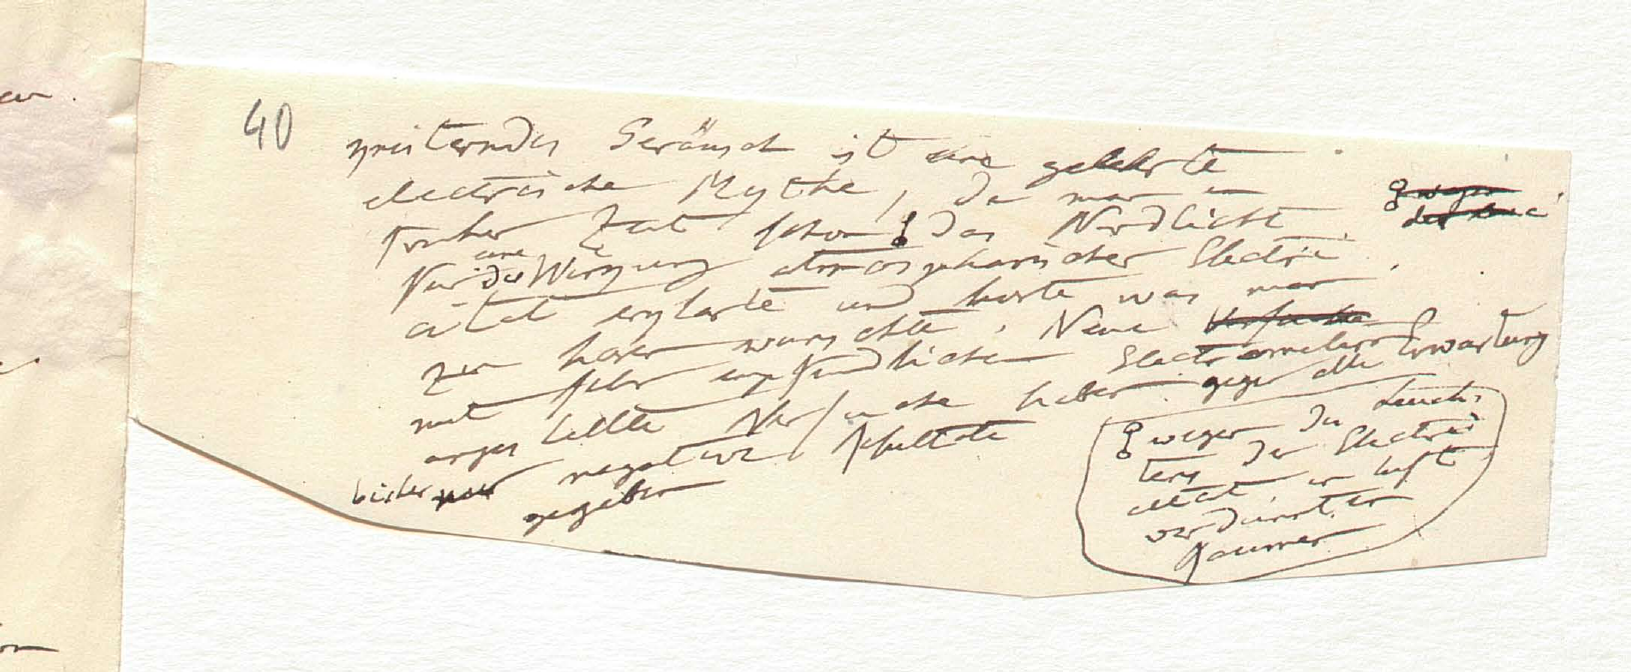 40
knisterndes Geräusch ist eine gelehrte
electrische Mythe, da man in
fruher Zeit schon das Nordlicht
eine
Nur der Wirkung atmospharischer Electri
citat erklarte und horte was man
zu horen wunschte. Neue Versuche
mit sehr empfindlichen Electrometern
angestellte Versuche haben gegen alle Erwartung
bisher nur negative Resultate
gegeben
wegen
des
wegen des Leuch-
tens der Electri
citat in luft
verdunnten
Raumen